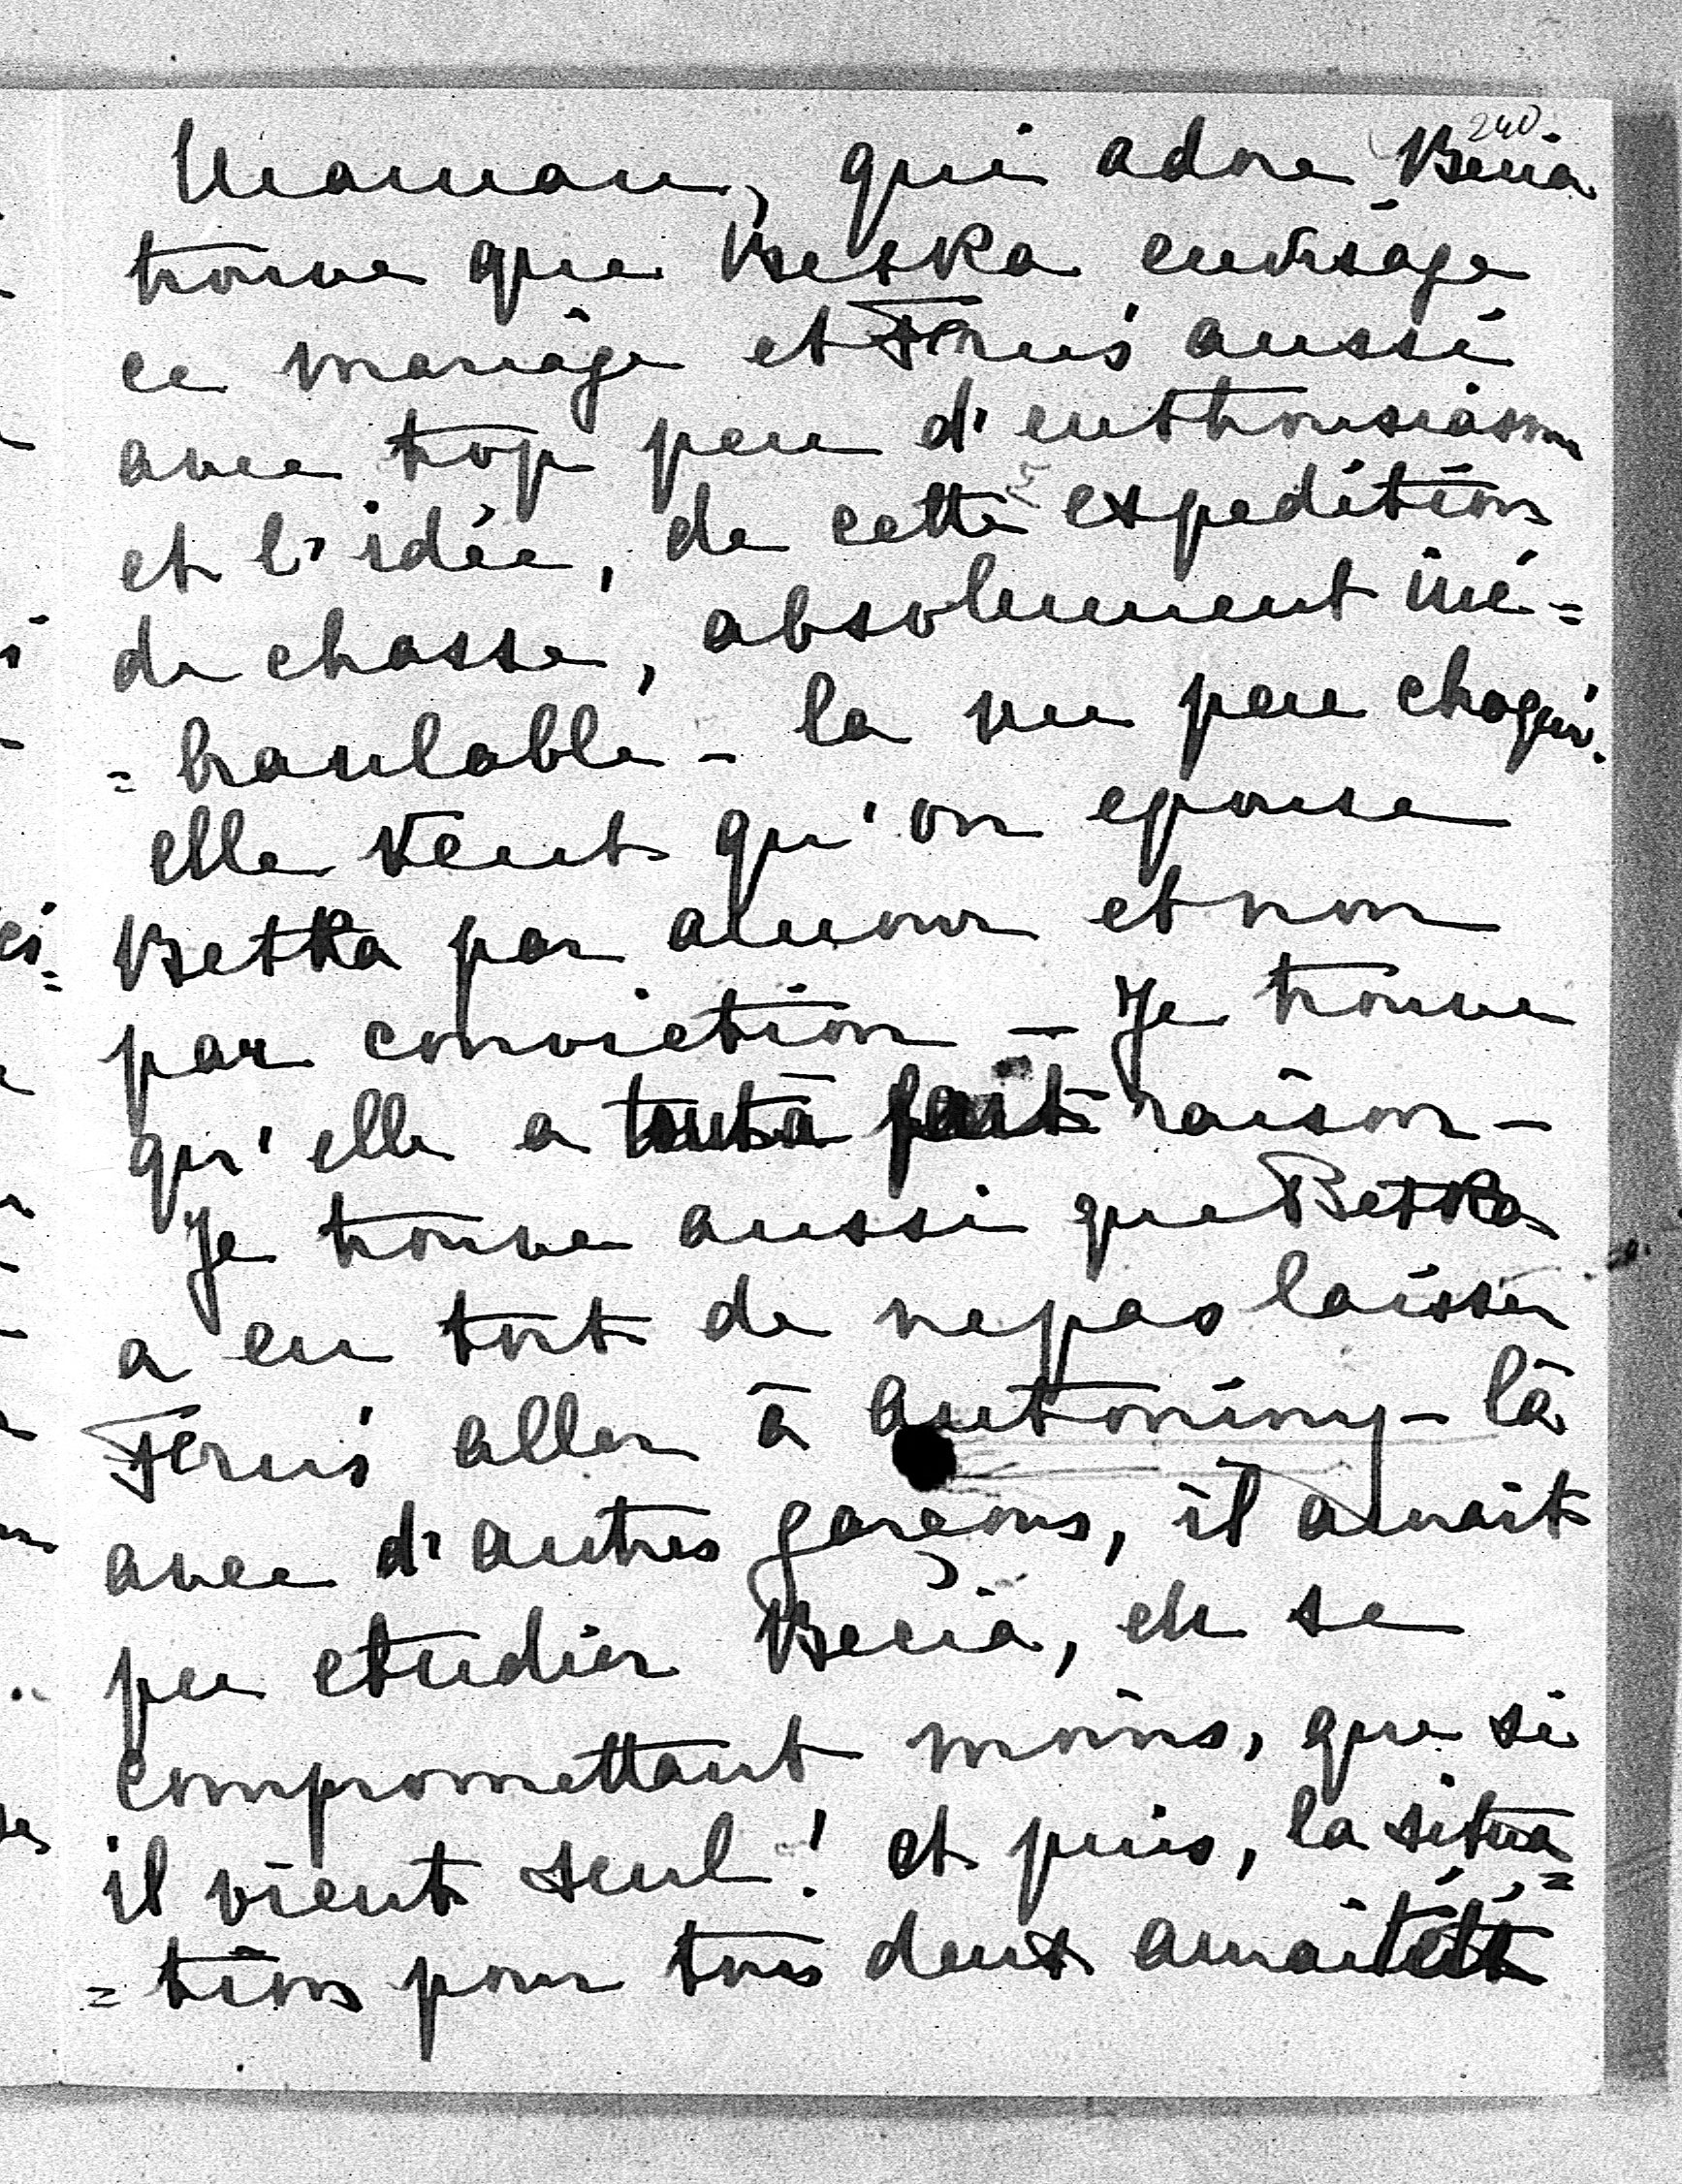 240
Maman, qui adore Becia
trouve que Betka envisage
ce mariage et Ferus' aussi
avec trop peu d'enthousiasme
et l'idée, de cette expedition
de chasse, absolument iné=
=branlable - la un peu chagrin.
elle veut qu'on epouse
Betka par amour et non
par conviction - Je trouve
qu'elle a tout à fait raison -
Je trouve aussi que Betka
a eu tort de ne pas laisser
Ferus' aller à Antoniny - là
avec d'autres garçons, il aurait
pu etudier Becia, en se
compromettant moins, que si
il vient seul! et puis, la situa=
=tion pour tous deux aurait été